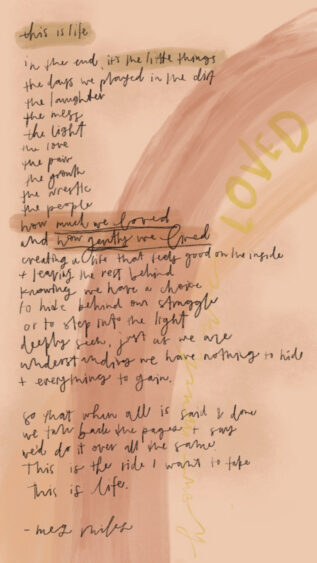 this is life
in the end, it's the little things
the days we played in the dirt
the laughter
the mess
the light
the love
the pain
the growth
the wrestle
the people
how much we loved
and how gently we lived
creating a life that feels good on the inside
+ leaving the rest behind
knowing we have a choice
to hide behind our struggle
or to step into the light
deeply seen, just as we are
understanding we have nothing to hide
+ everything to gain.
so that when all is said & done
we turn back the pages + say
we'd do it over all the same.
This is the ride I want to take
This is life.
LOVED